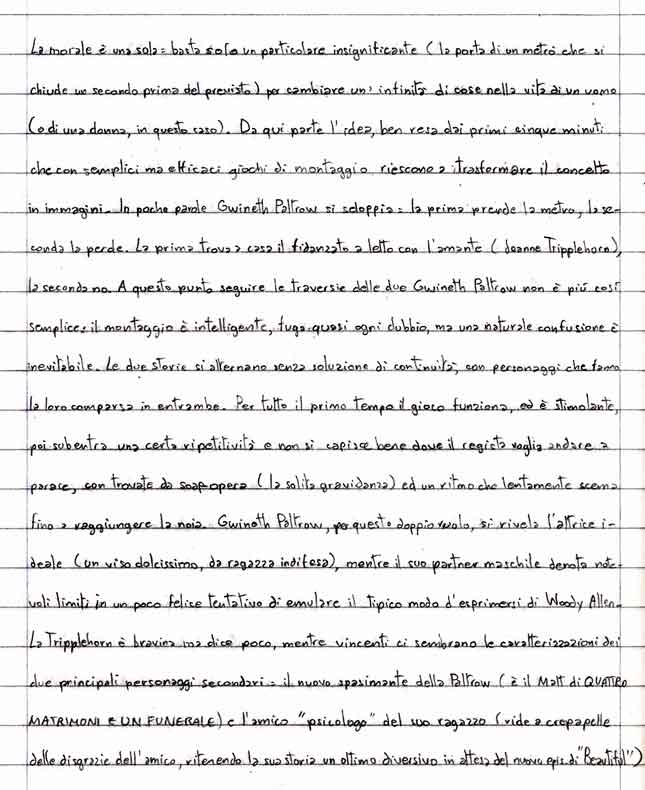 La morale è una sola: basta solo un particolare insignificante (la porta di un metrò che si
chiude un secondo prima del previsto) per cambiare un' infinità di cose nella vita di un uomo
(o di una donna, in questo caso). Da qui parte l'idea, ben resa dai primi cinque minuti
che con semplici ma efficaci giochi di montaggio riescono a trasformare il concetto
in immagini. In poche parole Gwineth Paltrow si sdoppia: la prima prende la metro, la se-
conda la perde. La prima trova a casa il fidanzato a letto con l'amante (Jeanne Tripplehorn),
la seconda no. A questo punto seguire le traversie delle due Gwineth Paltrow non è più così
semplice: il montaggio è intelligente, fuga quasi ogni dubbio, ma una naturale confusione è
inevitabile. Le due storie si alternano senza soluzione di continuità, con personaggi che fanno
la loro comparsa in entrambe. Per tutto il primo tempo il gioco funziona, ed è stimolante,
poi subentra una certa ripetitività e non si capisce bene dove il regista voglia andare a
parare, con trovate da soap-opera (la solita gravidanza) ed un ritmo che lentamente scema
fino a raggiungere la noia. Gwineth Paltrow, per questo doppio ruolo, si rivela l'attrice i-
deale (un viso dolcissimo, da ragazza indifesa), mentre il suo partner maschile denota note-
voli limiti in un poco felice tentativo di emulare il tipico modo d'esprimersi di Woody Allen.
La Tripplehorn è bravina ma dice poco, mentre vincenti ci sembrano le caratterizzazioni dei
due principali personaggi secondari: il nuovo spasimante della Paltrow (è il Matt di QUATTRO
MATRIMONI E UN FUNERALE) e l'amico "psicologo" del suo ragazzo (ride a crepapelle
delle disgrazie dell'amico, ritenendo la sua storia un ottimo diversivo in attesa del nuovo epis. di "Beautiful")